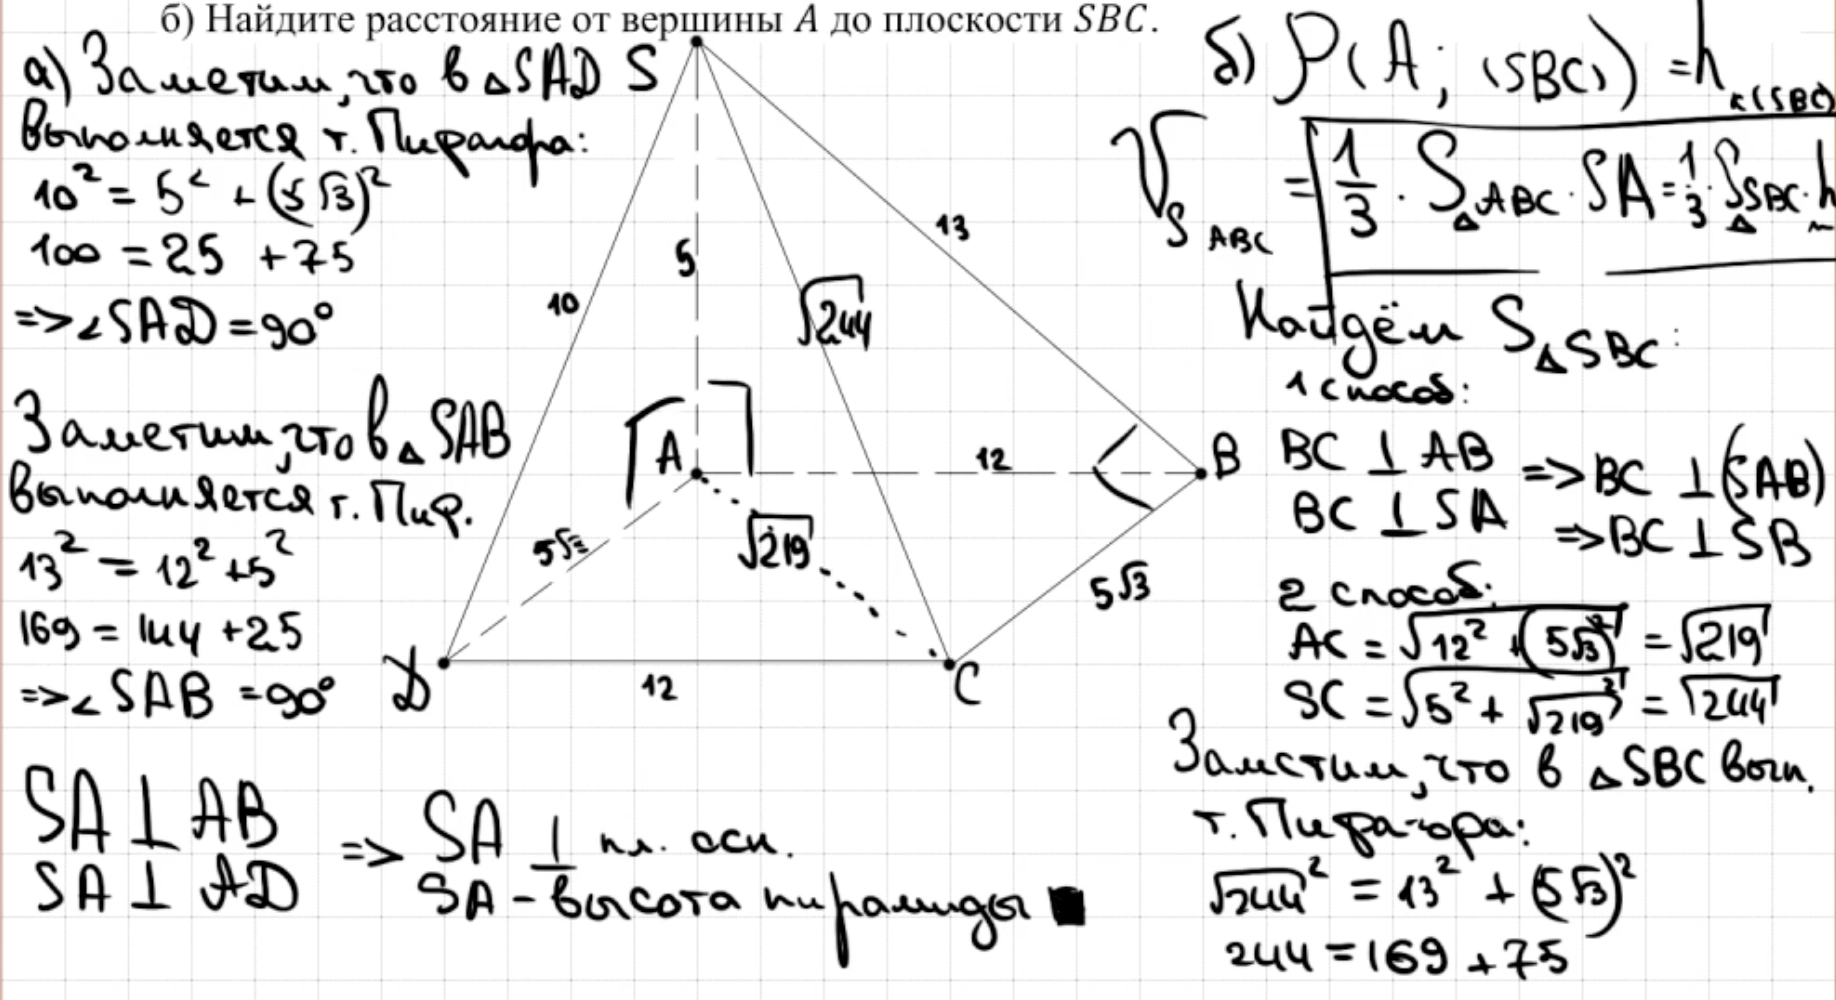 б) Найдите расстояние от вершины A до плоскости SBC.
а) Заметим, что в △SAD
выполняется т. Пифагора:
10² = 5² + (5√3)²
100 = 25 + 75
=> ∠SAD = 90°
Заметим, что в △SAB
выполняется т. Пиф.
13² = 12² + 5²
169 = 144 + 25
=> ∠SAB = 90°
SA ⊥ AB
SA ⊥ AD
=> SA ⊥ пл. осн.
SA - высота пирамиды ■
S
10
5
√244
13
A
12
B
5√3
√219
5√3
D
12
C
б) ρ(A; (SBC)) = h к (SBC)
V SABC = 1/3 · S△ABC · SA = 1/3 · S△SBC · h
Найдём S△SBC:
1 способ:
BC ⊥ AB => BC ⊥ (SAB)
BC ⊥ SA => BC ⊥ SB
2 способ:
AC = √12² + (5√3)² = √219
SC = √5² + √219² = √244
Заметим, что в △SBC вып.
т. Пифагора:
√244² = 13² + (5√3)²
244 = 169 + 75